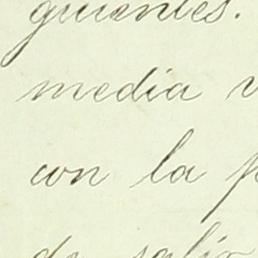 guientes.
media v
con la p
de salir